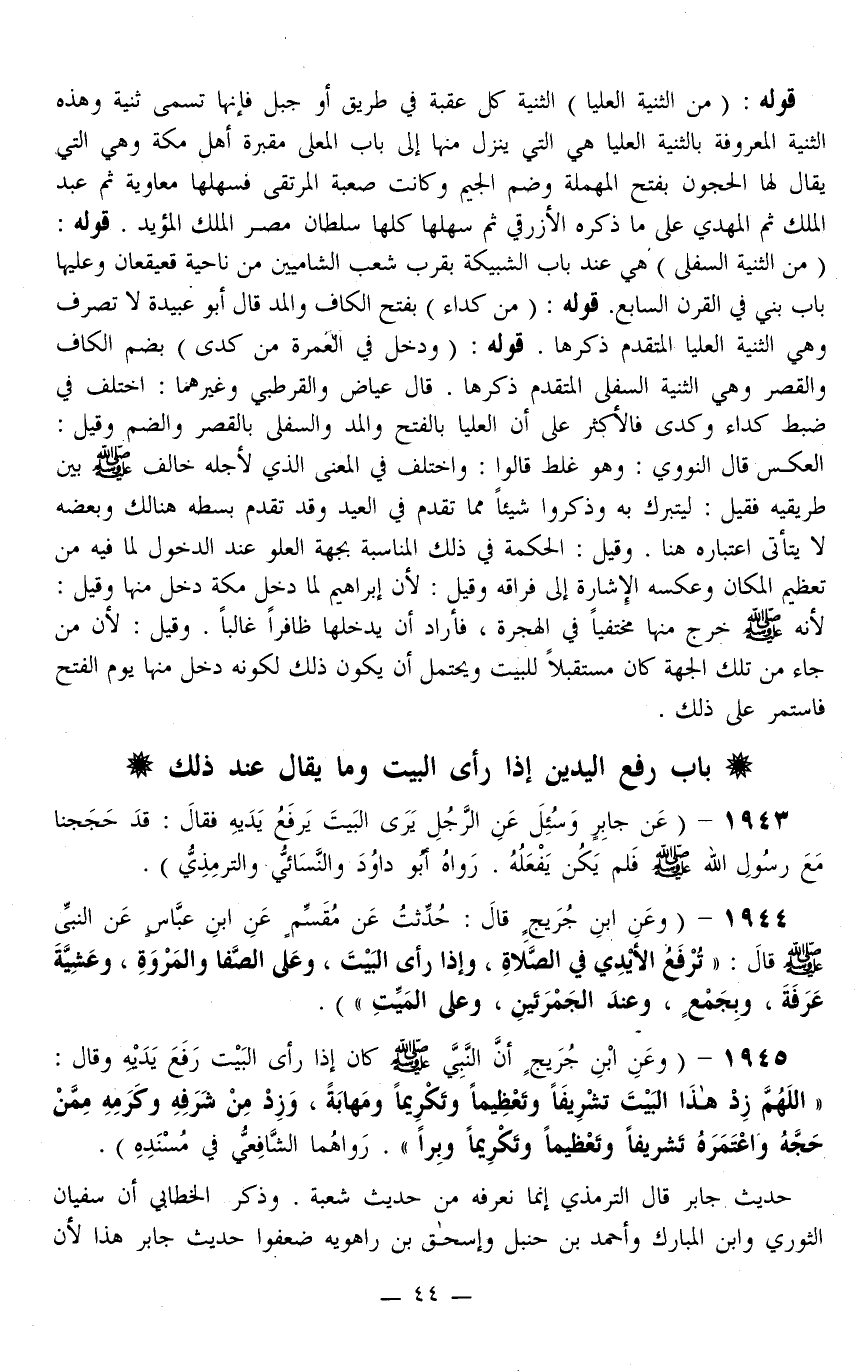 قوله : ( من الثنية العليا ) الثنية كل عقبة في طريق أو جبل فإنها تسمى ثنية وهذه
الثنية المعروفة بالثنية العليا هي التي ينزل منها إلى باب المعلى مقبرة أهل مكة وهي التي
يقال لها الحجون بفتح المهملة وضم الجيم وكانت صعبة المرتقى فسهلها معاوية ثم عبد
الملك ثم المهدي على ما ذكره الأزرقي ثم سهلها كلها سلطان مصر الملك المؤيد . قوله :
( من الثنية السفلى ) هي عند باب الشبيكة بقرب شعب الشاميين من ناحية قعيقعان وعليها
باب بني في القرن السابع. قوله : ( من كداء ) بفتح الكاف والمد قال أبو عبيدة لا تصرف
وهي الثنية العليا المتقدم ذكرها . قوله : ( ودخل في العُمرة من كدى ) بضم الكاف
والقصر وهي الثنية السفلى المتقدم ذكرها . قال عياض والقرطبي وغيرهما : اختلف في
ضبط كداء وكدى فالأكثر على أن العليا بالفتح والمد والسفلى بالقصر والضم وقيل :
العكس قال النووي : وهو غلط قالوا : واختلف في المعنى الذي لأجله خالف ﷺ بين
طريقيه فقيل : ليتبرك به وذكروا شيئاً مما تقدم في العيد وقد تقدم بسطه هنالك وبعضه
لا يتأتى اعتباره هنا . وقيل : الحكمة في ذلك المناسبة بجهة العلو عند الدخول لما فيه من
تعظيم المكان وعكسه الإشارة إلى فراقه وقيل : لأن إبراهيم لما دخل مكة دخل منها وقيل :
لأنه ﷺ خرج منها مختفياً في الهجرة ، فأراد أن يدخلها ظافراً غالباً . وقيل : لأن من
جاء من تلك الجهة كان مستقبلاً للبيت ويحتمل أن يكون ذلك لكونه دخل منها يوم الفتح
فاستمر على ذلك .
✸ باب رفع اليدين إذا رأى البيت وما يقال عند ذلك ✸
١٩٤٣ – ( عَن جابِرٍ وَسُئِلَ عَنِ الرَّجُلِ يَرَى البَيتَ يَرفَعُ يَدَيهِ فقالَ : قدَ حَجَجنا
مَعَ رسُولِ الله ﷺ فَلم يَكُن يَفْعَلُهُ . رَواهُ أبُو داوُدَ والنَّسَائيُّ والترمِذِيُّ ) .
١٩٤٤ – ( وعَنِ ابنِ جُرَيجٍ قالَ : حُدِّثتُ عَن مُقَسِّمٍ عَنِ ابنِ عبَّاسٍ عَن النبىِّ
ﷺ قالَ : « تُرْفَعُ الأيْدِي في الصَّلاةِ ، وإذا رأى البَيْتَ ، وعَلى الصَّفا والمَرْوَةِ ، وعَشيَّةَ
عَرَفَةَ ، وبِجَمْعٍ ، وعندَ الجَمْرَتَينِ ، وعلى المَيِّتِ » ) .
١٩٤٥ – ( وعَنِ ابْنِ جُرَيجٍ أنَّ النَّبيَّ ﷺ كان إذا رأى البَيْت رَفَعَ يَدَيْهِ وقال :
« اللَهُمَّ زِدْ هٰذَا البَيْتَ تَشْرِيفَاً وتَعْظِيماً وتَكْرِيماً ومَهابَةً ، وَزِدْ مِنْ شَرَفِهِ وكَرَمِهِ مِمَّنْ
حَجَّهُ وَاعْتَمَرَهُ تَشريفاً وتَعْظيماً وتَكْرِيماً وبِراً » . رَواهُما الشَّافِعيُّ في مُسْنَدِهِ ) .
حديث جابر قال الترمذي إنما نعرفه من حديث شعبة . وذكر الخطابي أن سفيان
الثوري وابن المبارك وأحمد بن حنبل وإسحٰق بن راهويه ضعفوا حديث جابر هذا لأن
— ٤٤ —